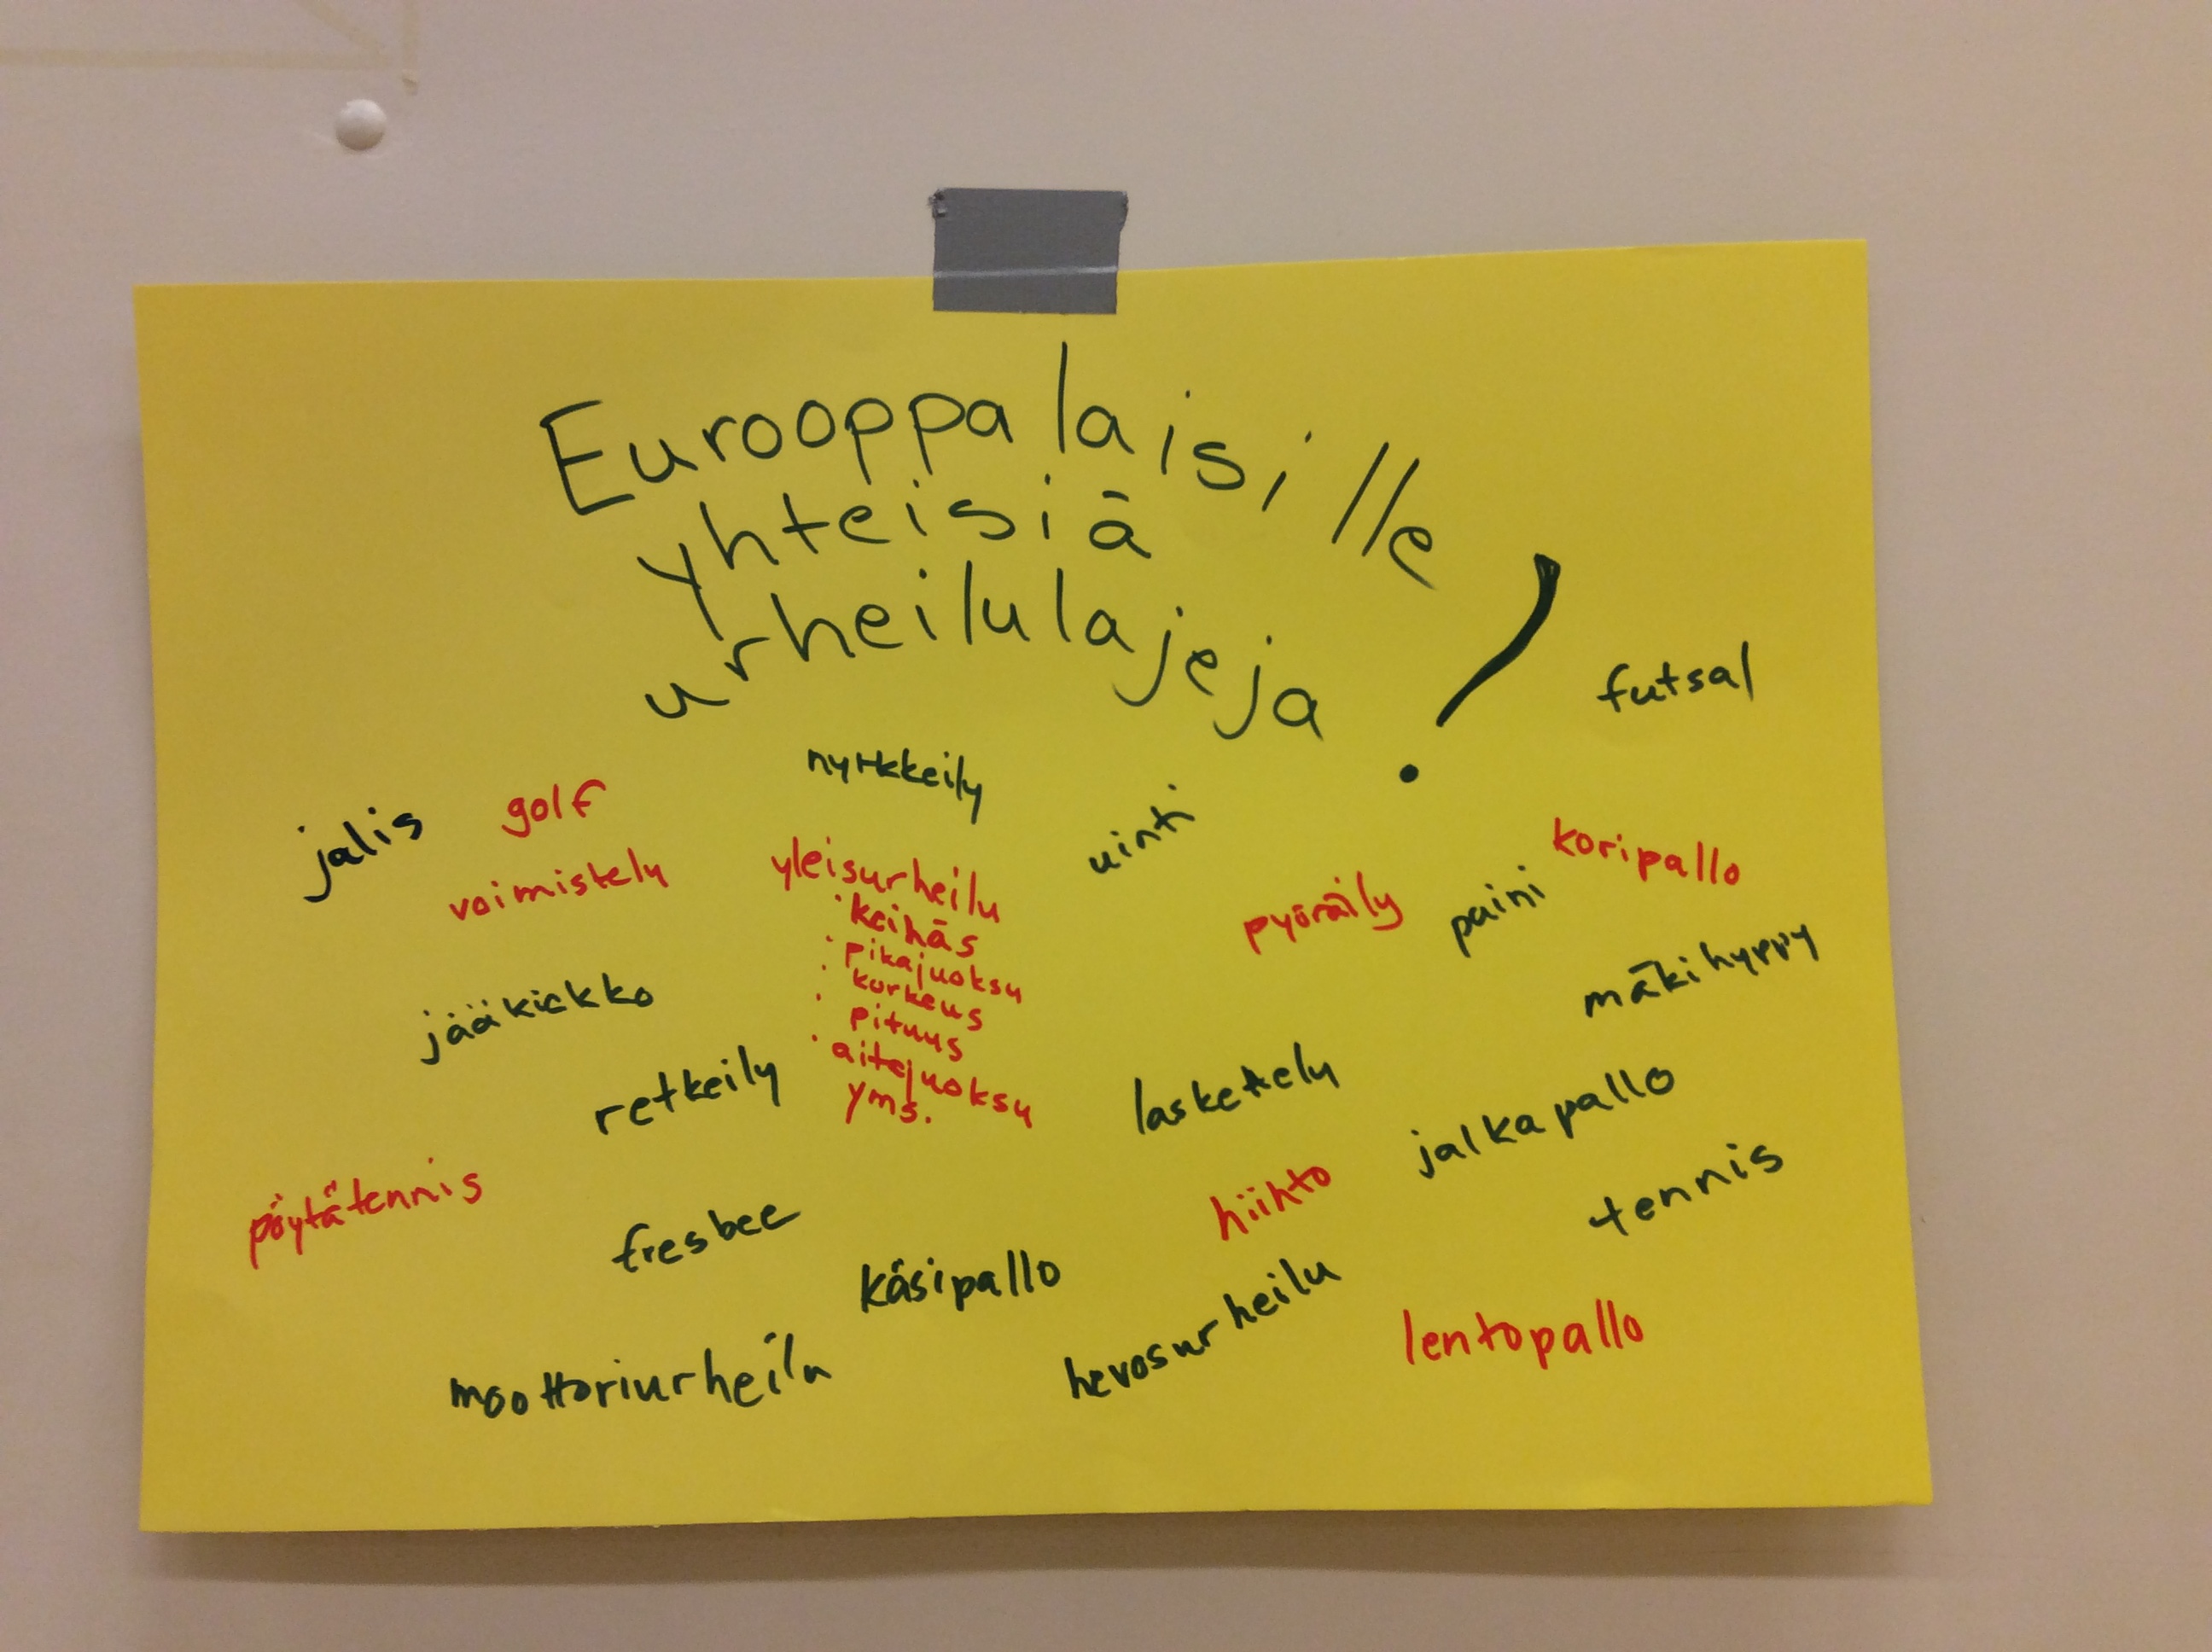 Eurooppalaisille
yhteisiä
urheilulajeja !
futsal
nyrkkeily
jalis
golf
uinti
voimistely
yleisurheilu
· keihäs
· pikajuoksu
· korkeus
· pituus
· aitajuoksu
yms.
koripallo
pyöräily
paini
mäkihyppy
jääkiekko
retkeily
laskettely
jalkapallo
pöytätennis
hiihto
tennis
fresbee
käsipallo
hevosurheilu
lentopallo
moottoriurheilu